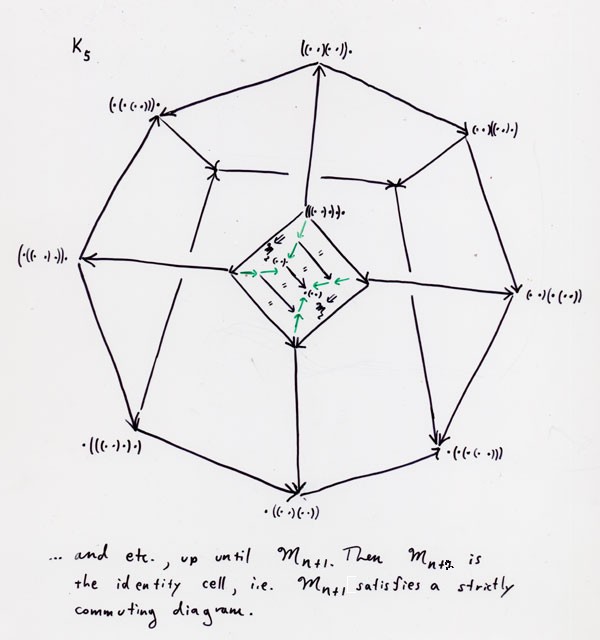 K5
((··)(··))·
(·(··)))·
(··)((··)·)
(((··)·)·)·
(·((··)·))·
(··)(·(··))
·(((··)·)·)
·(·(·(··)))
·((··)(··))
... and etc., up until Mn+1. Then Mn+2 is
the identity cell, i.e. Mn+1 satisfies a strictly
commuting diagram.